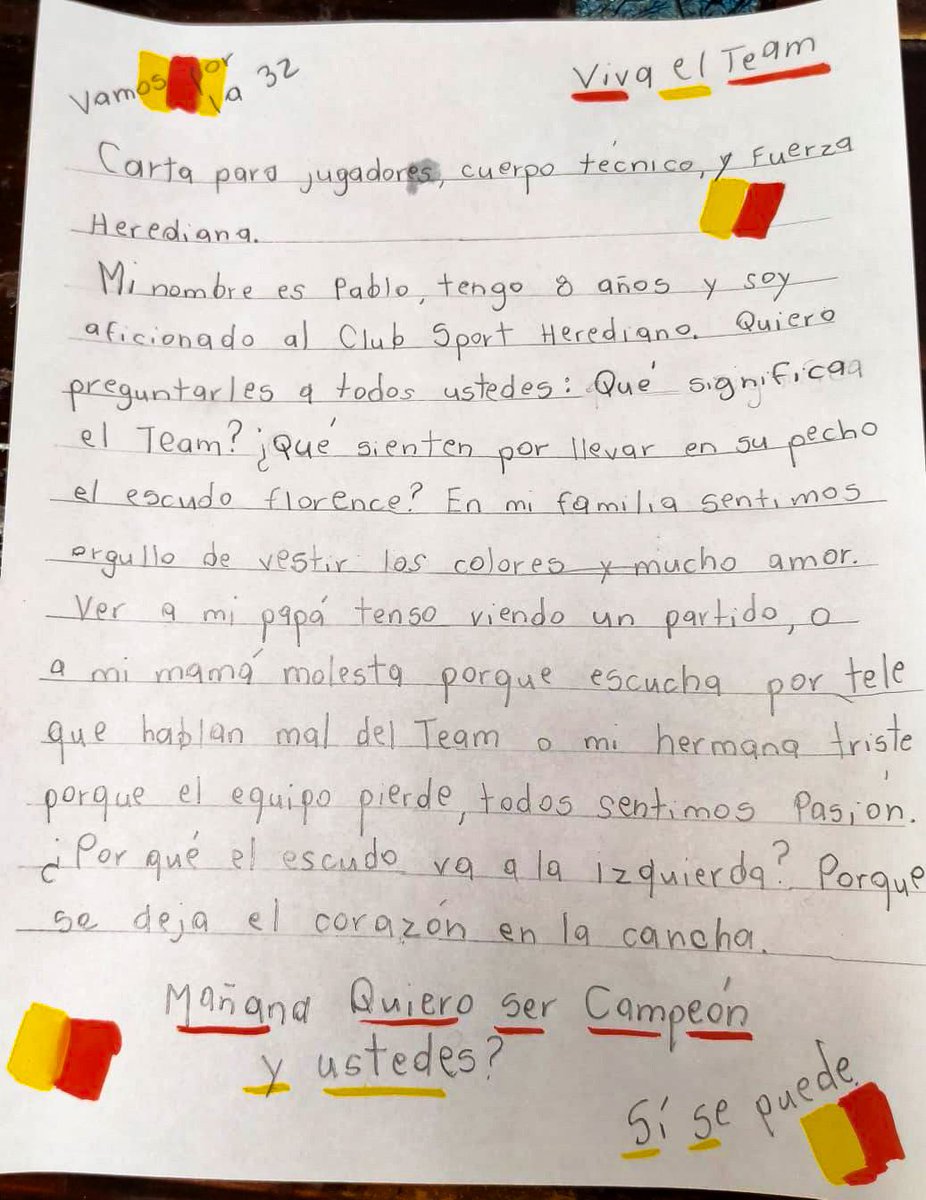 Vamos por la 32
Viva el Team
Carta para jugadores, cuerpo técnico, y Fuerza
Herediana.
Mi nombre es Pablo, tengo 8 años y soy
aficionado al Club Sport Herediano. Quiero
preguntarles a todos ustedes: Qué significaa
el Team? ¿Qué sienten por llevar en su pecho
el escudo florence? En mi familia sentimos
orgullo de vestir los colores y mucho amor.
Ver a mi papá tenso viendo un partido, o
a mi mamá molesta porque escucha por tele
que hablan mal del Team o mi hermana triste
porque el equipo pierde, todos sentimos Pasión.
¿Por qué el escudo va a la izquierda? Porque
se deja el corazón en la cancha.
Mañana Quiero ser Campeón
y ustedes?
Sí se puede.